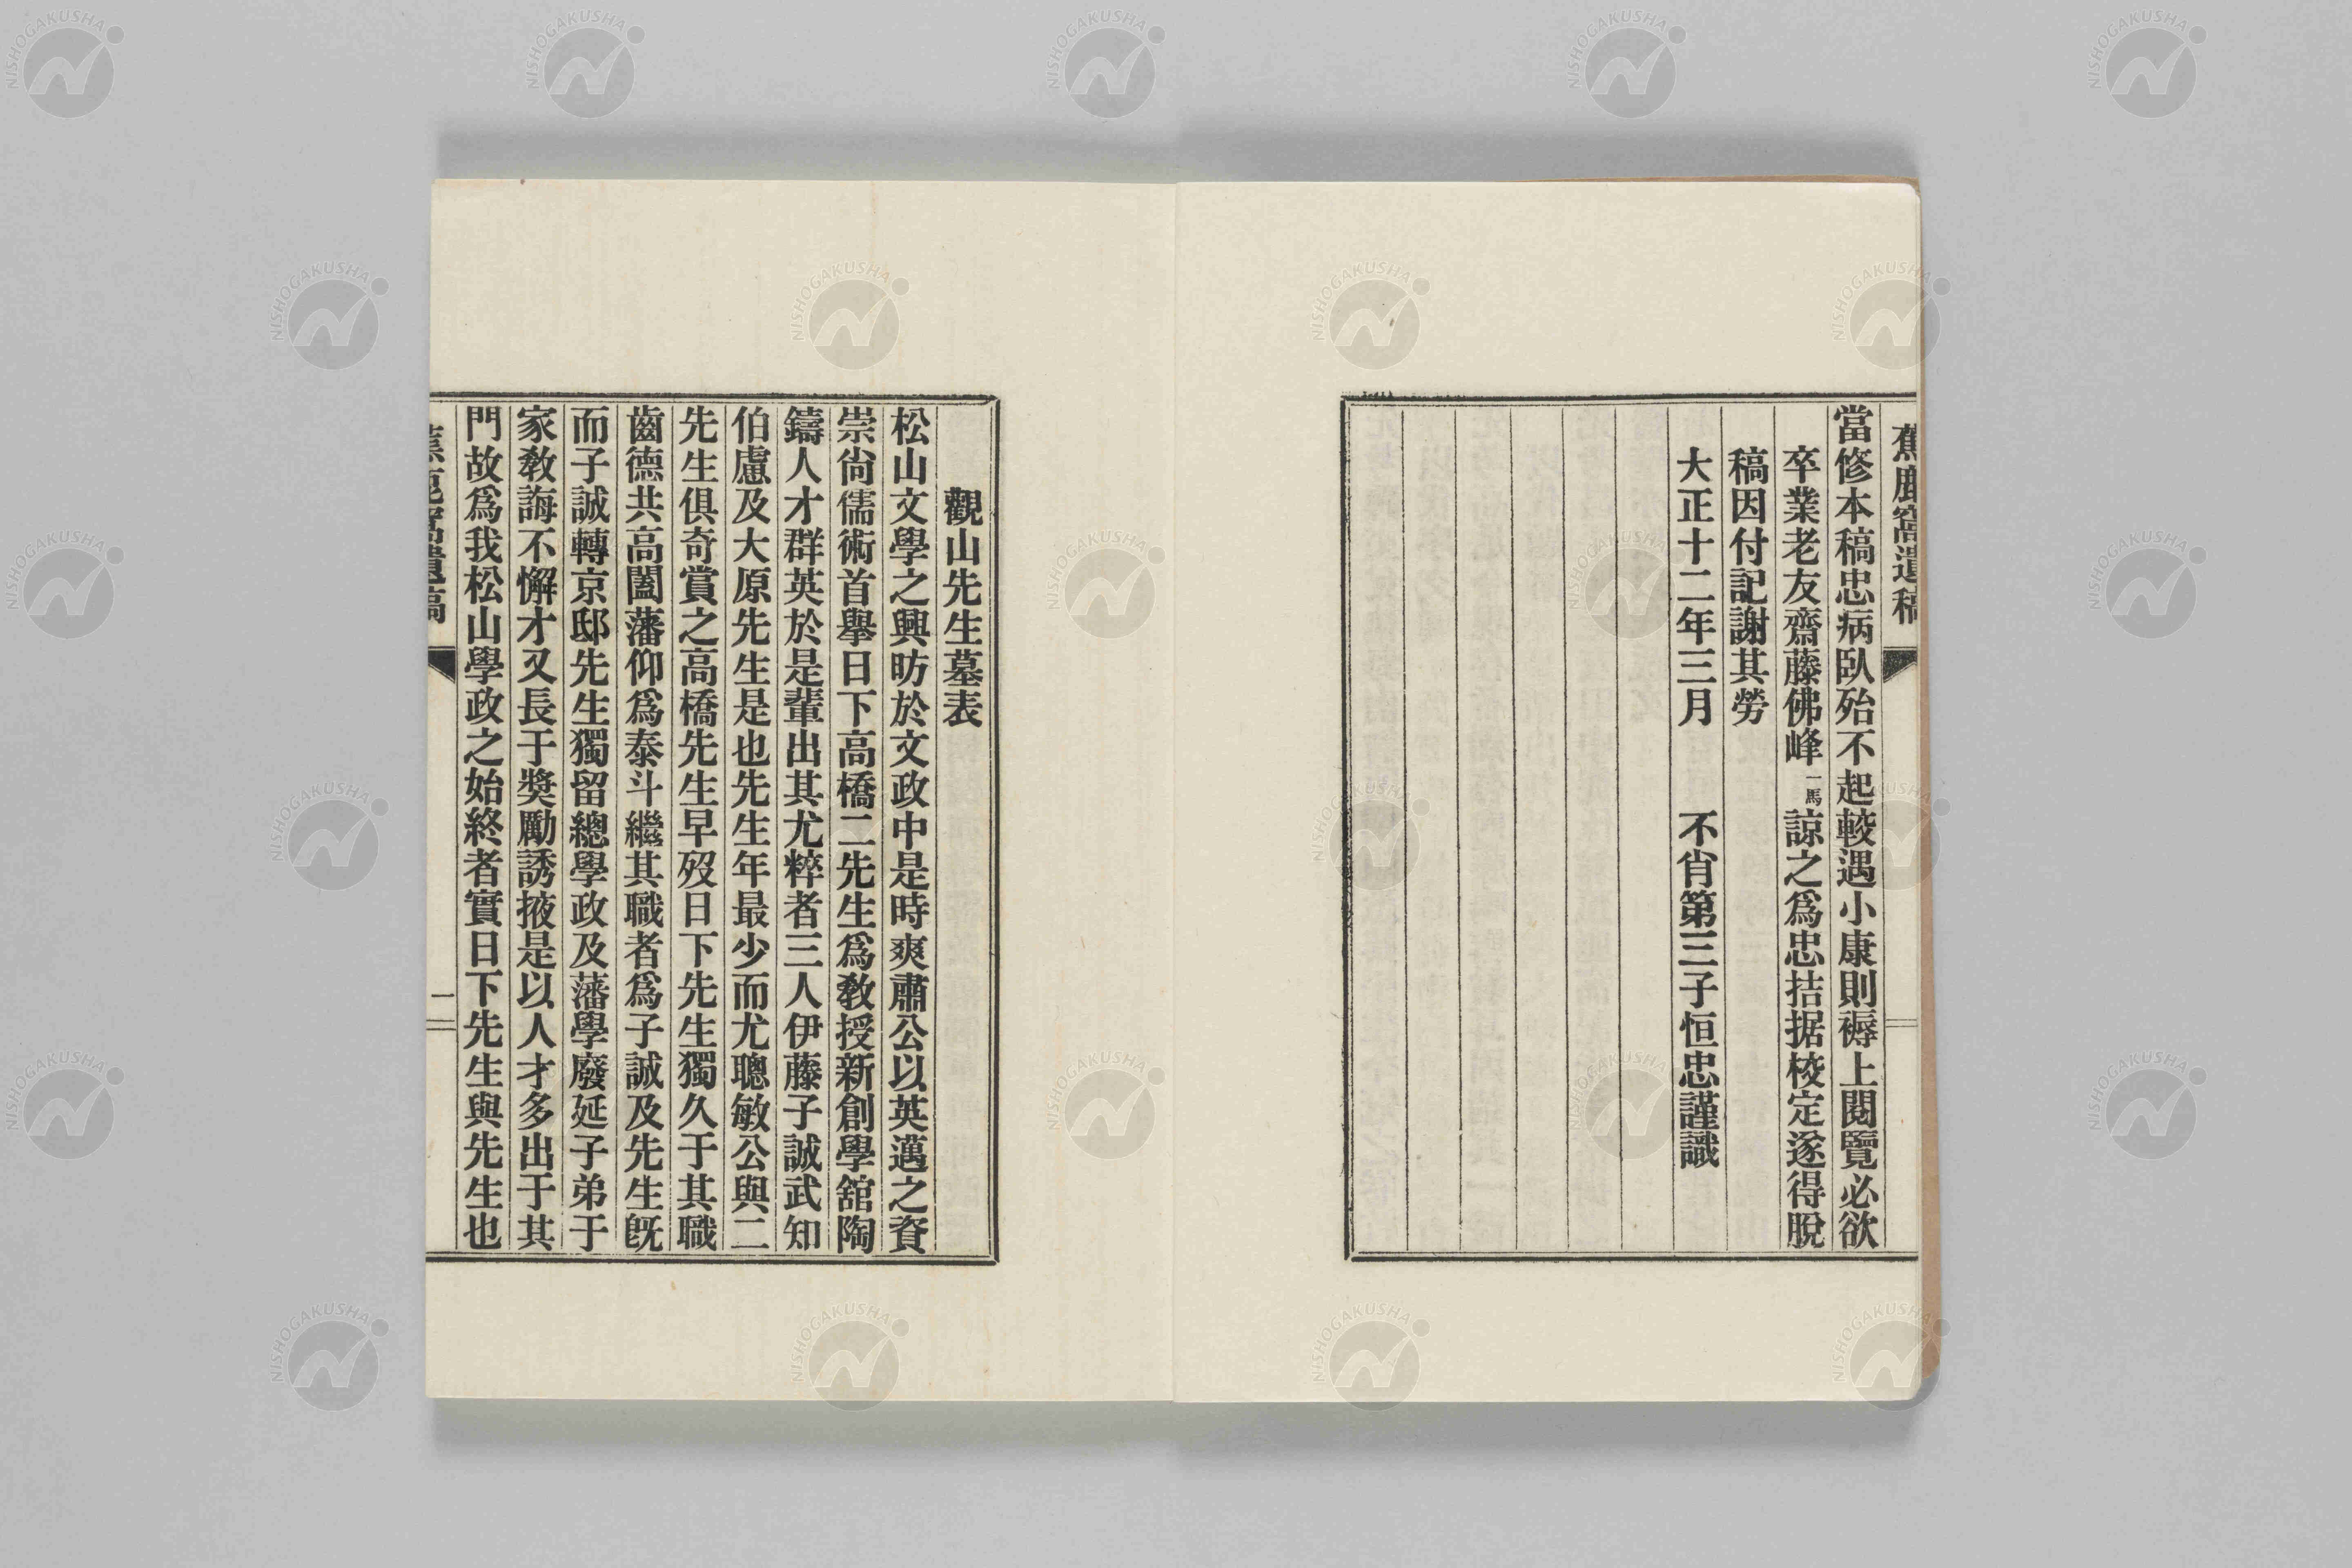 蕉鹿窩遺稿
當修本稿忠病臥殆不起較遇小康則褥上閱覽必欲
卒業老友齋藤佛峰一馬諒之爲忠拮据校定遂得脫
稿因付記謝其勞
大正十二年三月　　不肖第三子恒忠謹識
觀山先生墓表
松山文學之興昉於文政中是時爽肅公以英邁之資
崇尙儒術首擧日下高橋二先生爲敎授新創學舘陶
鑄人才群英於是輩出其尤粹者三人伊藤子誠武知
伯慮及大原先生是也先生年最少而尤聰敏公與二
先生俱奇賞之高橋先生早歿日下先生獨久于其職
齒德共高闔藩仰爲泰斗繼其職者爲子誠及先生旣
而子誠轉京邸先生獨留總學政及藩學廢延子弟于
家敎誨不懈才又長于奬勵誘掖是以人才多出于其
門故爲我松山學政之始終者實日下先生與先生也
蕉鹿窩遺稿
一
NISHOGAKUSHA